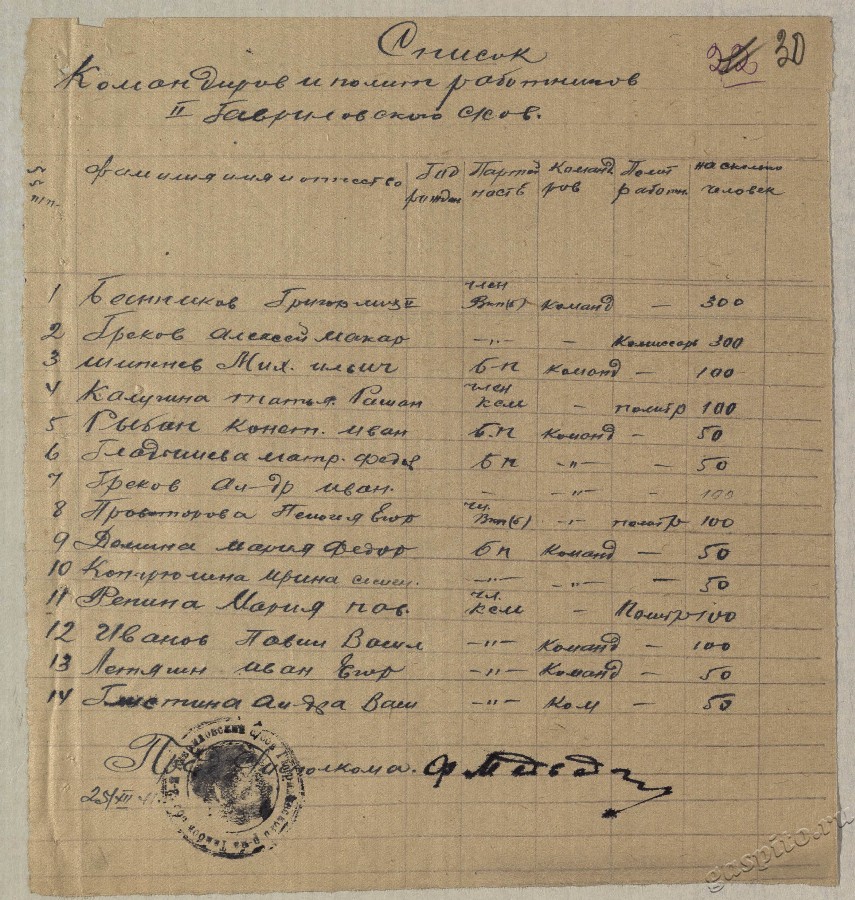 Список 22 30
Командиров и полит работников
II Гавриловского с/сов.
№ № п/п. Фамилия имя и отчество Год рожден Партейность Командиров Полит работн на сколько человек
1 Григор член Вкп(б) команд — 300
2 Греков Алексей Макар —"— — Комиссарь 300
3 Мих. Ильич б-п команд — 100
4 Калугина Татья. член ксм — политр 100
5 Рыбан Конст. Иван б.п команд — 50
6 Гладышева Матр. Федор бп —"— — 50
7 Греков Ал-др Иван. — —"— — 100
8 Егор чл. Вкп(б) —"— политр 100
9 Демина Мария Федор бп Команд — 50
10 Ирина —"— —"— — 50
11 Репина Мария Пав. чл. ксм — Политр 100
12 Иванов Павил Васил —"— Команд — 100
13 Летягин Иван Егор —"— Команд — 50
14 Ал-дра Васи —"— Ком — 50
Пред исполкома.
25/XII
gaspito.ru